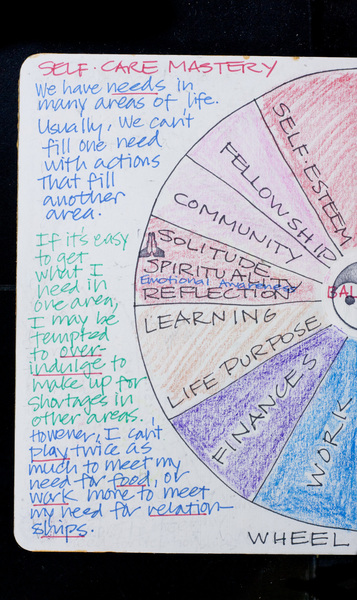 SELF-CARE MASTERY
We have needs in
many areas of life.
Usually, we can't
fill one need
with actions
that fill
another
area.
If it's easy
to get
what I
need in
one area,
I may be
tempted
to over-
indulge to
make up for
shortages in
other areas.
However, I can't
play twice as
much to meet my
need for food, or
work more to meet
my need for relation-
ships.
SELF-ESTEEM
FELLOWSHIP
COMMUNITY
SOLITUDE
SPIRITUALITY
Emotional Awareness
REFLECTION
BAL
LEARNING
LIFE PURPOSE
FINANCES
WORK
WHEEL